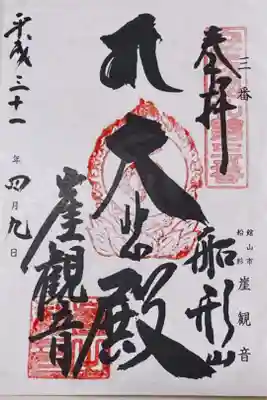 三番
奉拝
館山市
船形
崖観音
船形山
大悲殿
崖觀音
平成三十一年四月九日